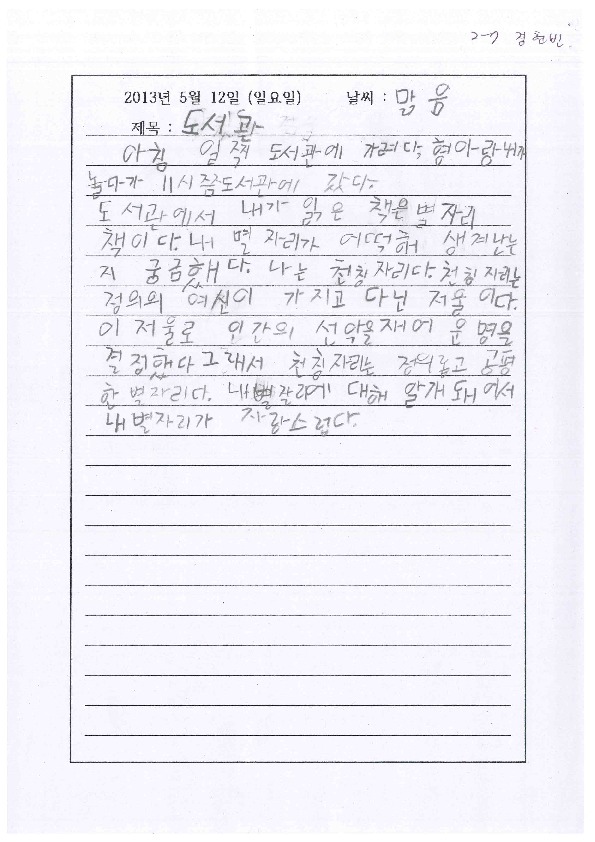 2-7 정현빈
2013년 5월 12일 (일요일) 날씨 : 맑음
제목 : 도서관
아침 일찍 도서관에 가려다, 형아랑 내가
놀다가 11시쯤 도서관에 갔다.
도서관에서 내가 읽은 책은 별자리
책이다. 내 별자리가 어떡해 생겨난는
지 궁금했다. 나는 천칭자리다. 천칭자리는
정의의 여신이 가지고 다닌 저울이다.
이 저울로 인간의 선악을 재어 운명을
결정했다 그래서 천칭자리는 정의롭고 공평
한 별자리다. 내 별자리에 대해 알개 돼어서
내 별자리가 자랑스럽다.